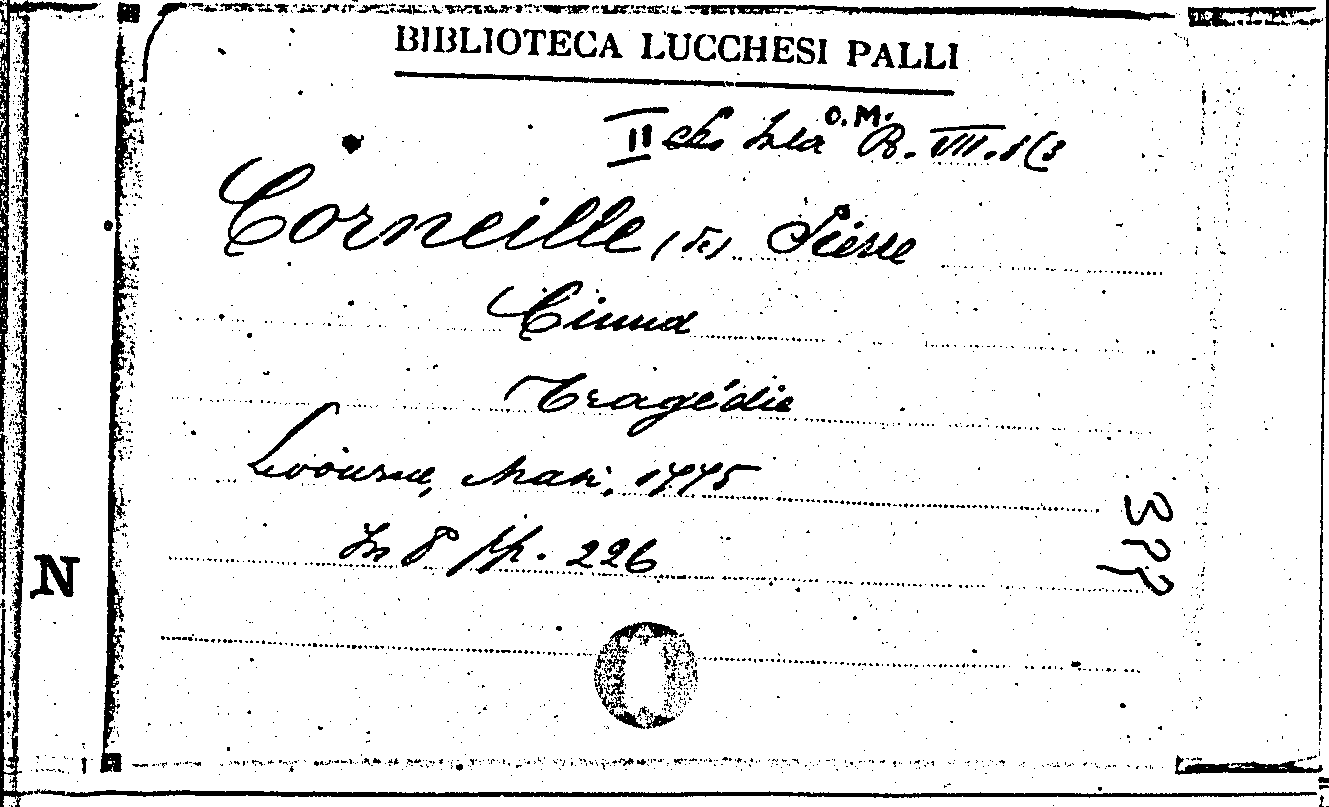 BIBLIOTECA LUCCHESI PALLI
O.M.
II Sala B. VIII. 8(3
Corneille (de) Pierre
Cinna
Tragédie
Livourne, Masi, 1775
In 8° pp. 226
N